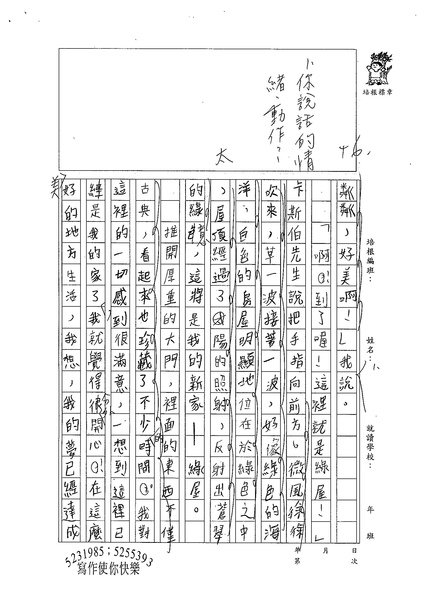 培根標章
培根編班：
姓名：
就讀學校：
年　班
年　月　日
第　　次
46.
你說話的情
緒、動作？
太
粼粼，好美啊！」我說。
「啊！到了喔！這裡就是綠屋！」
卡斯伯先生說把手指向前方。微風徐徐
吹來，草一波接著一波，好像綠色的海
洋，白色的房屋明顯地位在於綠色之中
，屋頂經過了陽的照射，反射出蒼翠
的綠，這將是我的新家——綠屋。
推開厚重的大門，裡面的東西不僅
古典，看起來也珍藏了不少時間。我對
這裡的一切感到很滿意，一想到這裡已
經是我的家了，我就覺得很開心！在這麼
美好的地方生活，我想，我的夢已經達成
5231985；5255393
寫作使你快樂